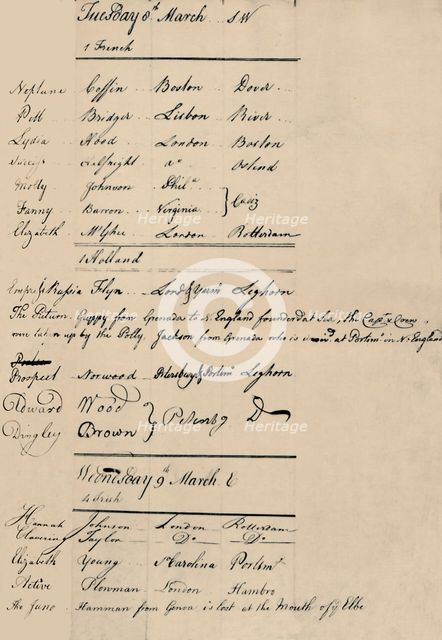 Tuesday 8th March SW
1 French
Neptune Coffin Boston Dover
Pitt Bridger Lisbon River
Lydia Hood London Boston
Success Halfnight Do Ostend
Molly Johnson Phila
Fanny Barron Virginia } Cadiz
Elizabeth McGhee London Rotterdam
1 Holland
& Russia Flyn Lond & Yarm Leghorn
The Pitcairn Guppy from Grenada to N England founder'd at Sea, the Capt & Crew
were taken up by the Polly, Jackson from Grenada who is at Portsmo in N England
Prospect Norwood Petersburg & Portsmo Leghorn
Edward Wood
Dingley Brown } Do
Wednesday 9th March E
4 Irish
Hannah Johnson London Rotterdam
Clavering Taylor Do Do
Elizabeth Young So Carolina Portsmo
Active Plowman London Hambro
The Juno Hamman from Genoa is lost at the Mouth of ye Elbe
Heritage
Heritage
Heritage
Heritage
Heritage
Heritage